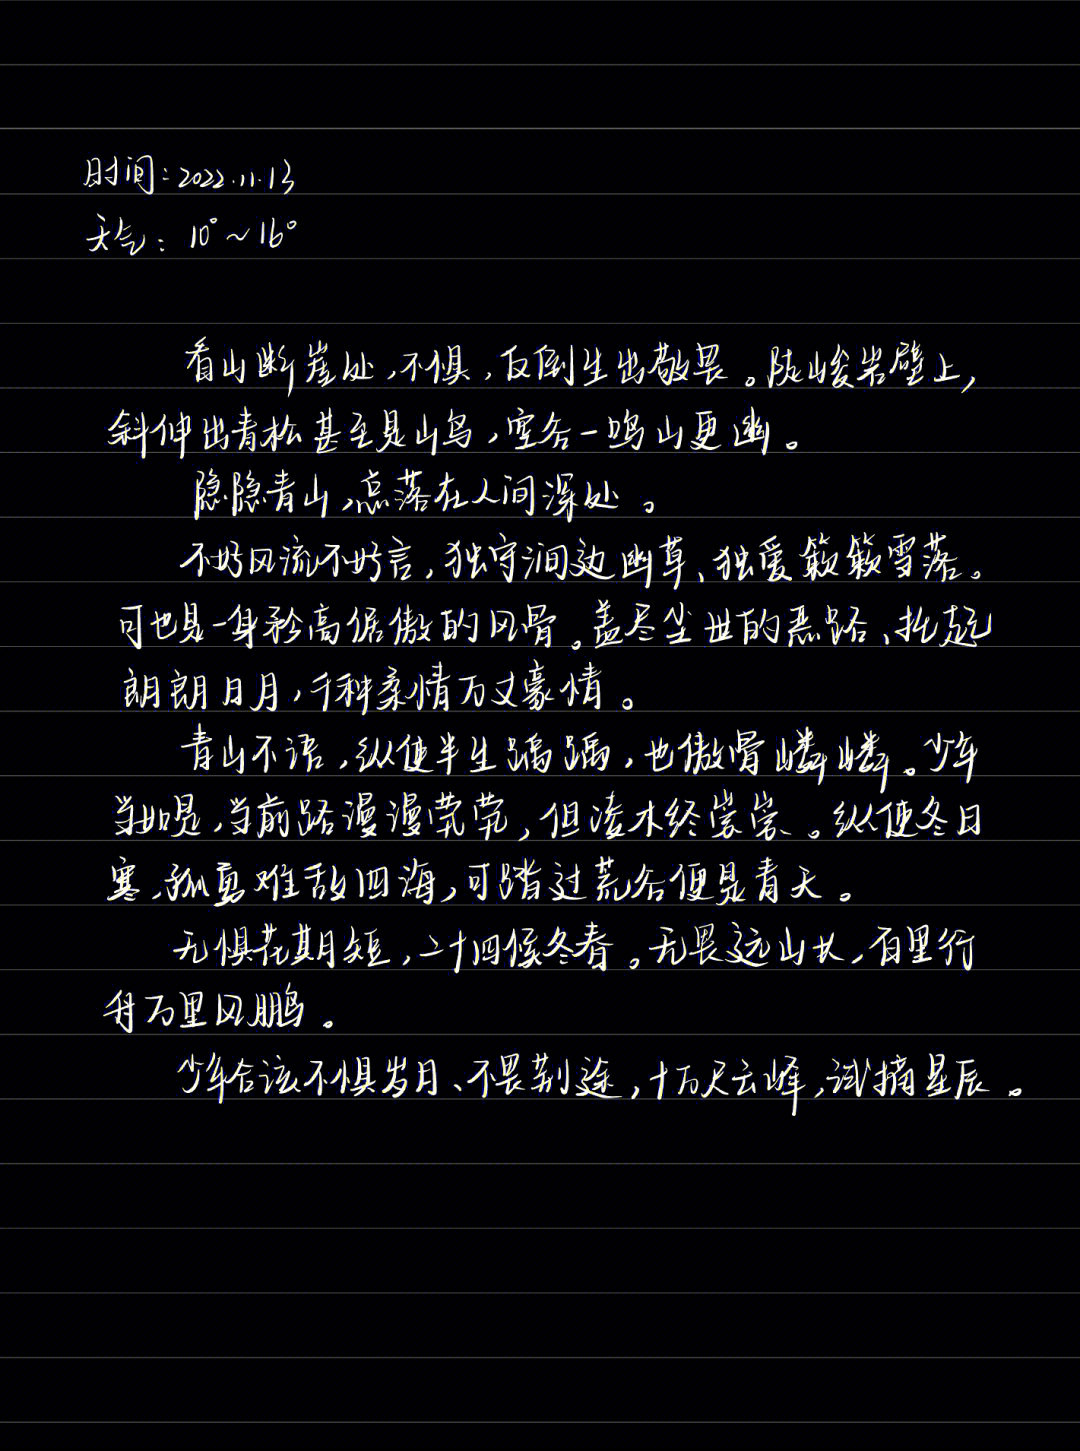 时间：2022.11.13
天气：10°~16°
看山断崖处，不惧，反倒生出敬畏。陡峻岩壁上，
斜伸出青松甚至是山鸟，空谷一鸣山更幽。
隐隐青山，点落在人间深处。
不好风流不好言，独守涧边幽草、独爱簌簌雪落。
可也是一身矜高倨傲的风骨。盖尽尘世的恶路、托起
朗朗日月，千种柔情万丈豪情。
青山不语，纵使半生踽踽，也傲骨嶙嶙。少年
当如是，当前路漫漫茕茕，但凌木终
纵使冬日
寒，孤勇难敌四海，可踏过荒谷便是青天。
无惧花期短，二十四候冬春。无畏远山长，百里行
舟万里风鹏。
少年合该不惧岁月、不畏荆途，十万尺云峰，试摘星辰。